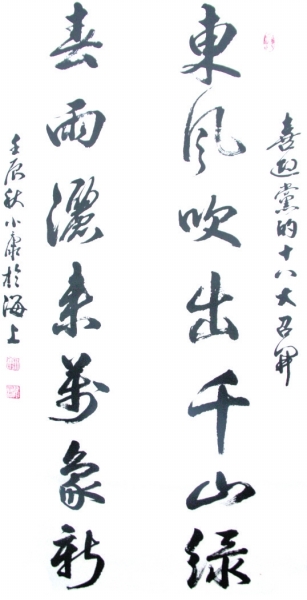 喜迎黨的十八大召開
東风吹出千山绿
春雨灑来萬象新
壬辰秋小康於海上